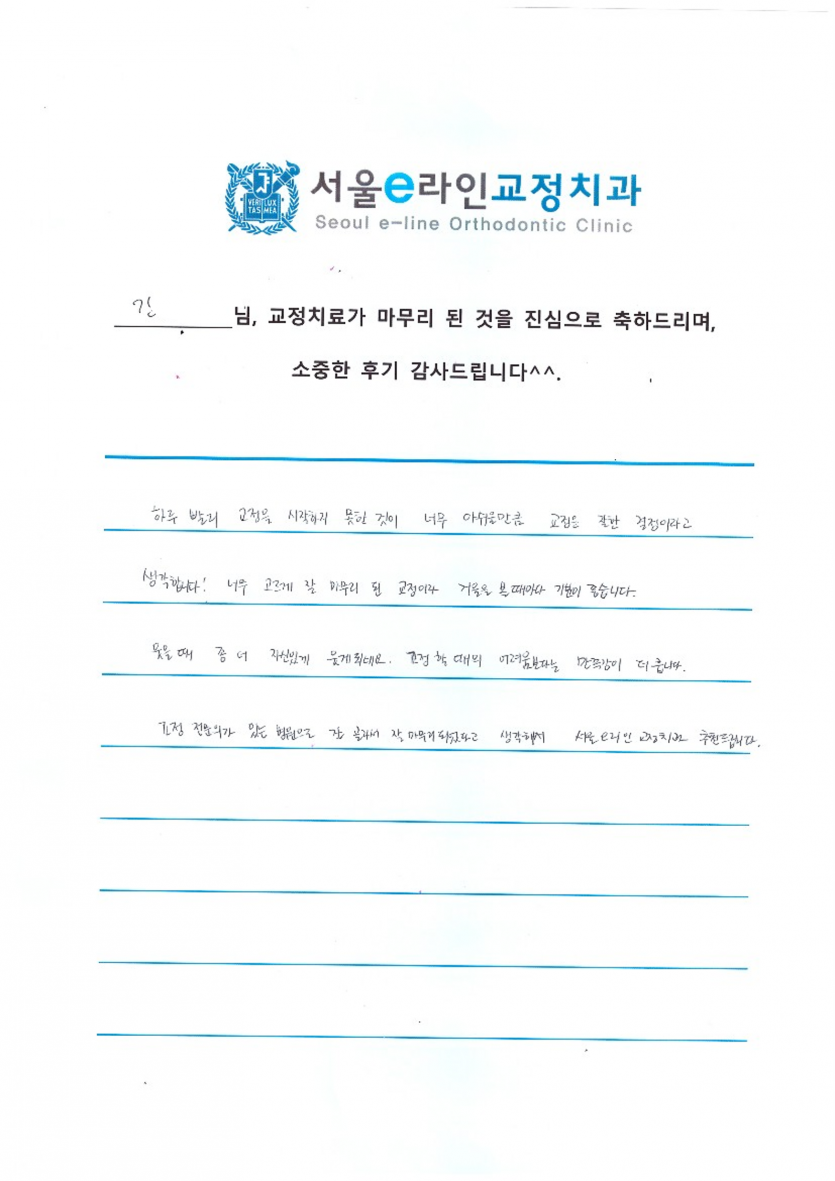 VERI LUX
TAS MEA
서울e라인교정치과
Seoul e-line Orthodontic Clinic
김 님, 교정치료가 마무리 된 것을 진심으로 축하드리며,
소중한 후기 감사드립니다^^.
하루 빨리 교정을 시작하지 못한 것이 너무 아쉬울만큼 교정은 잘한 결정이라고
생각합니다! 너무 고르게 잘 마무리 된 교정이라 거울을 볼때마다 기분이 좋습니다.
웃을 때 좀 더 자신있게 웃게되네요. 교정 할 때의 어려움보다는 만족감이 더 큽니다.
교정 전문의가 있는 병원으로 잘 골라서 잘 마무리되었다고 생각해서 서울e라인 교정치과 추천드립니다.